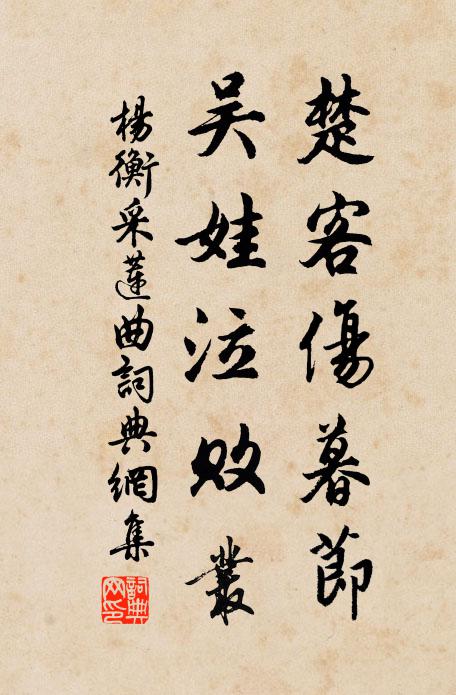 楚客傷暮節
吴娃泣敗叢
楊衡采蓮曲詞典網集
詞典網印